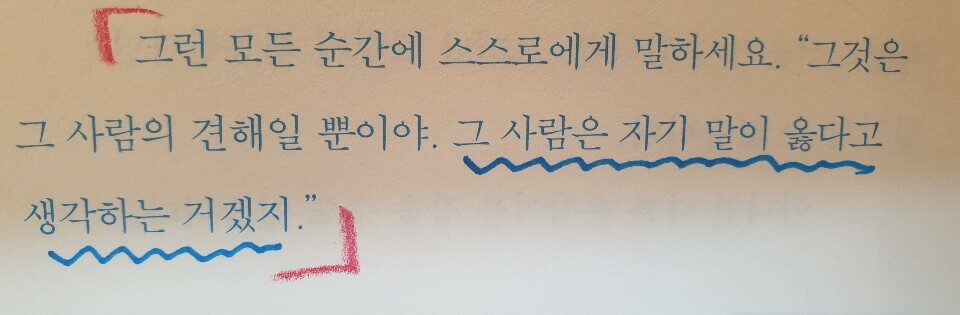 그런 모든 순간에 스스로에게 말하세요. “그것은
그 사람의 견해일 뿐이야. 그 사람은 자기 말이 옳다고
생각하는 거겠지.”